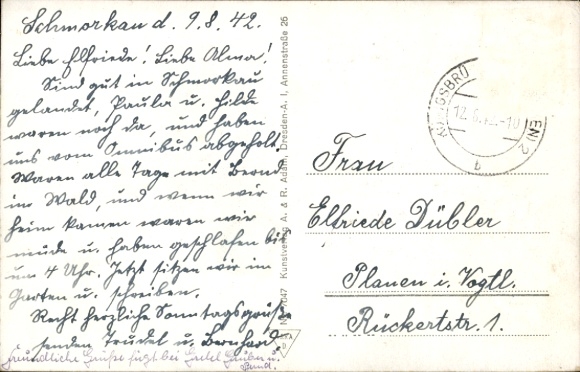 Schmorkau d. 9.8.42.
Liebe Elfriede! Liebe Alma!
Sind gut in Schmorkau
gelandet, Paula u. Hilde
waren noch da, und haben
uns vom Omnibus abgeholt.
Waren alle Tage mit Bernd
im Wald, und wenn wir
heim kamen waren wir
müde u. haben geschlafen bis
um 4 Uhr. Jetzt sitzen wir im
Garten u. schreiben.
Recht herzliche Sonntagsgrüße
senden Trudel u. Bernhard
Freundliche Grüße fügt bei
Kunstverlag A. & R. Adam, Dresden-A. 1, Annenstraße 26
12. 10
Frau
Elfriede Dübler
Plauen i. Vogtl.
Rückertstr. 1.